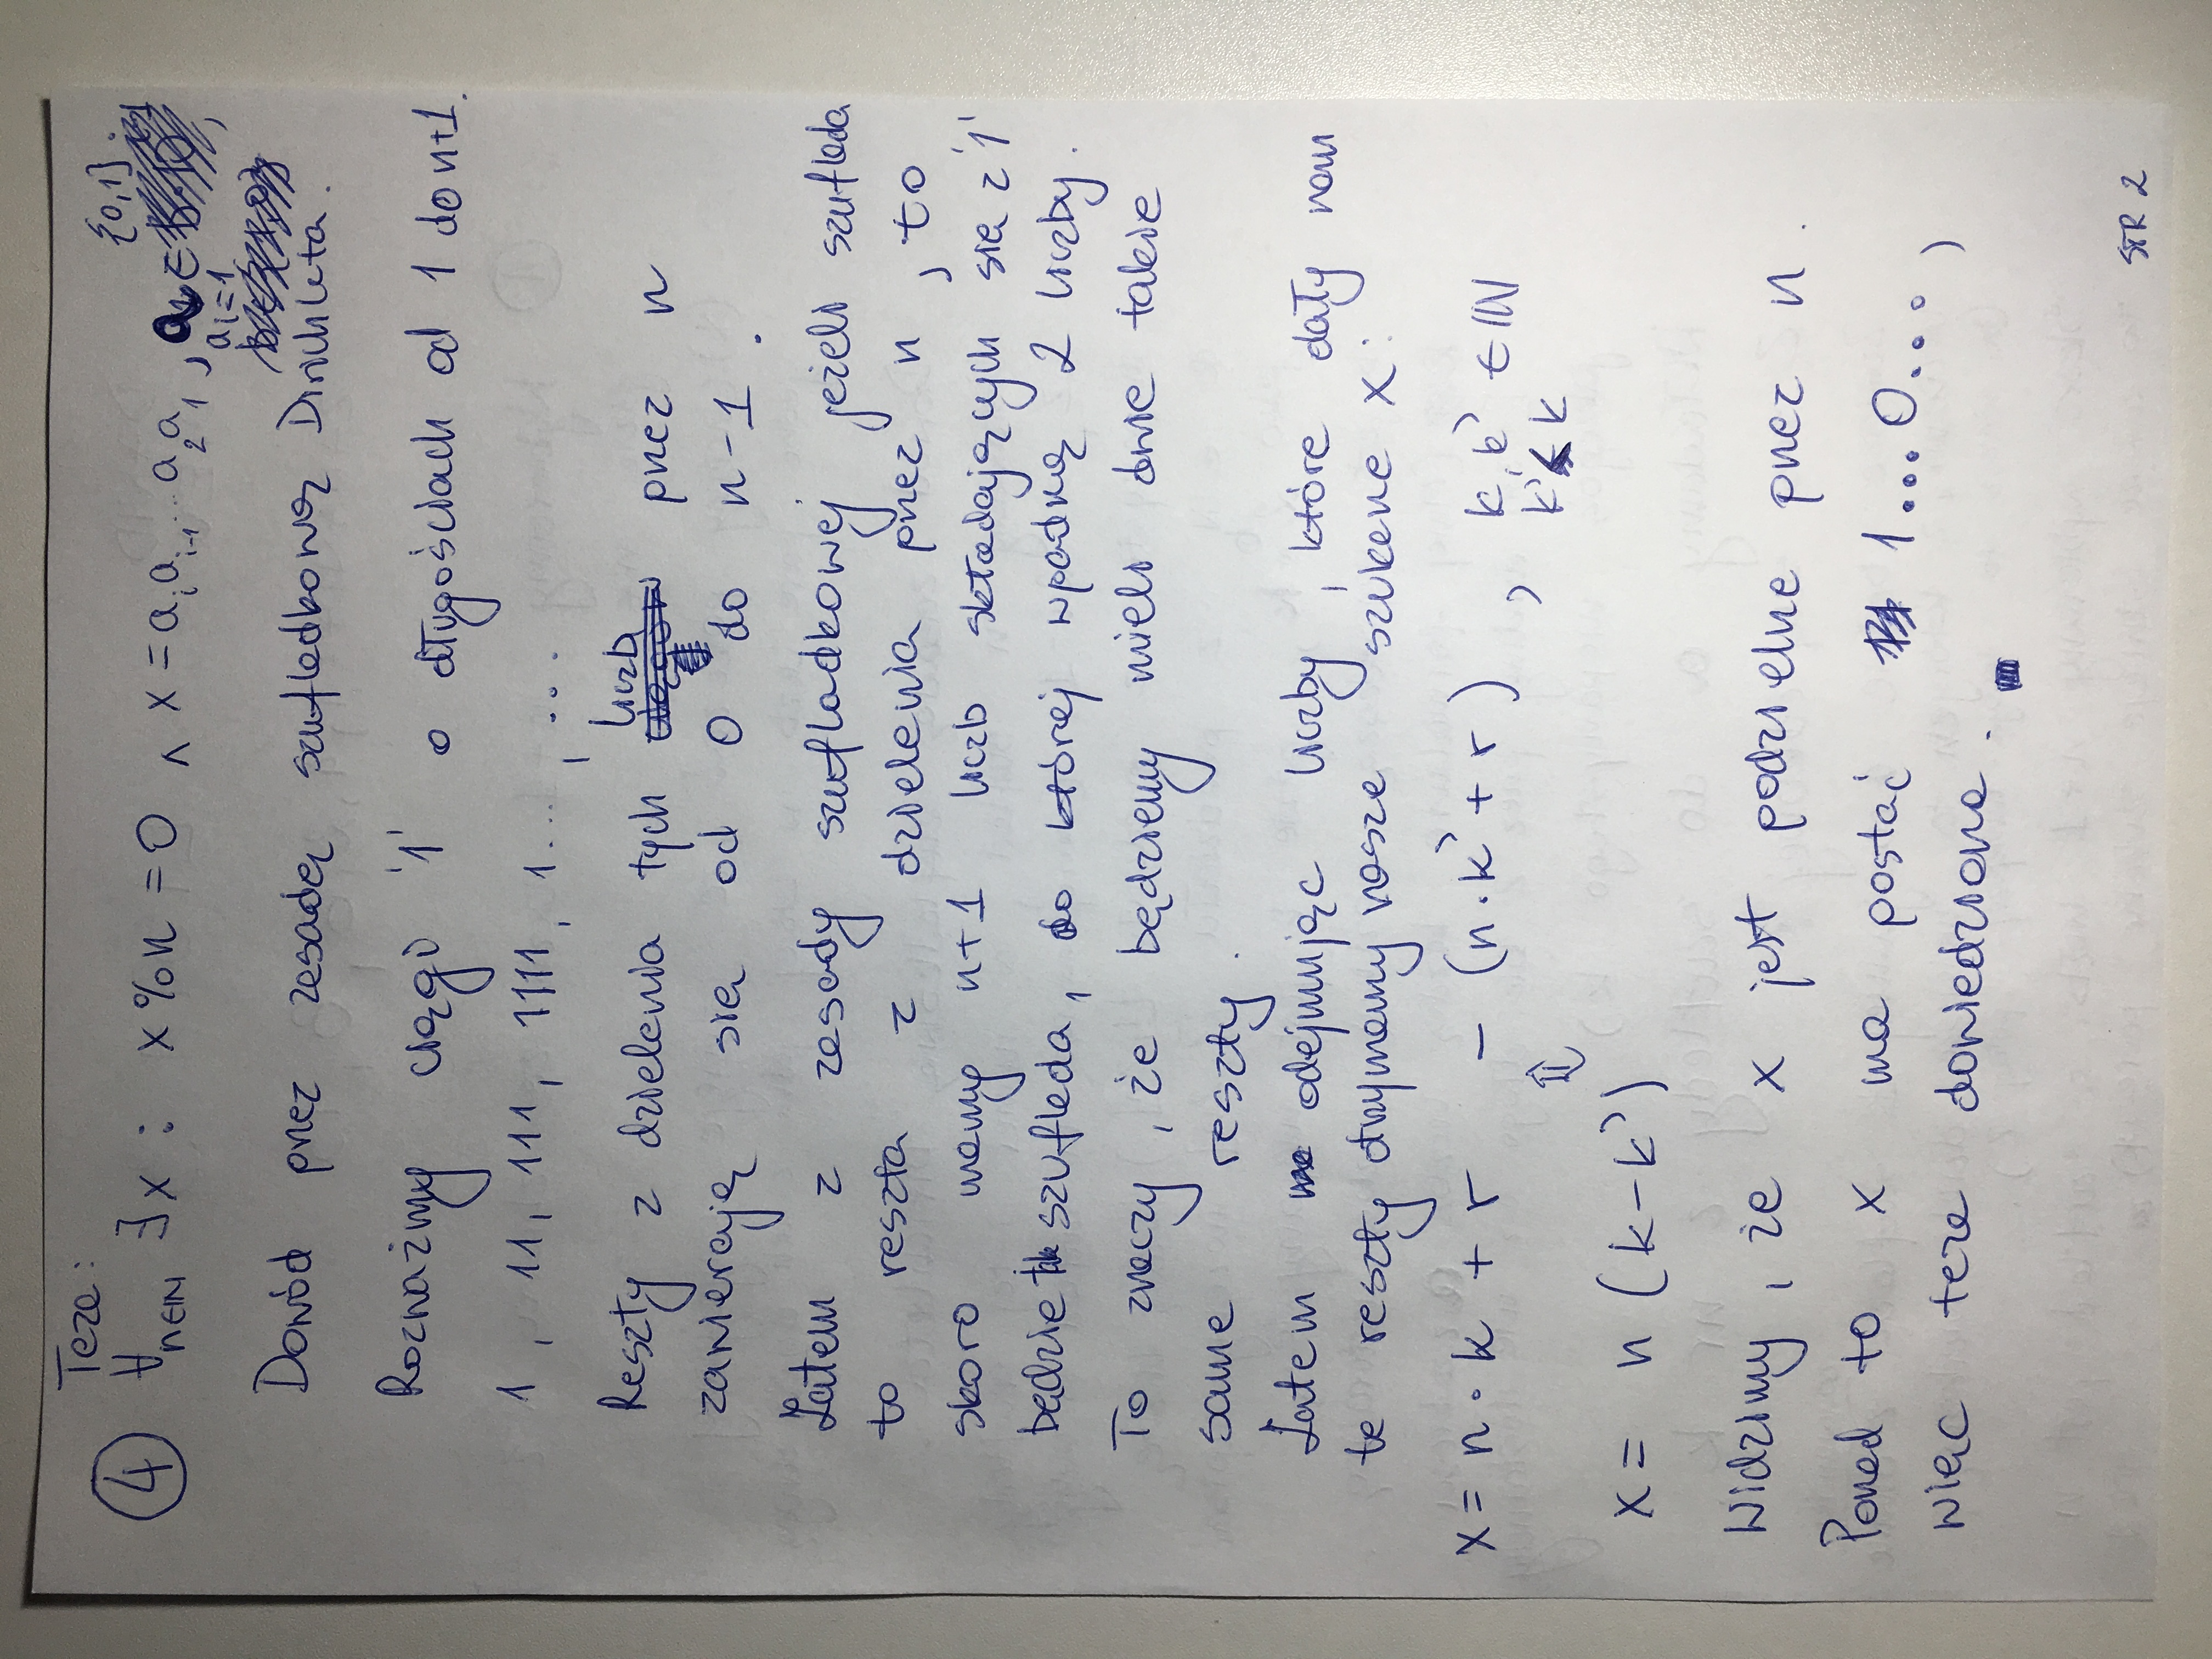 Teza:
④ ∀n∈ℕ ∃x : x%n = 0 ∧ x = aᵢaᵢ₋₁...a₂a₁, a ∈ {0,1}
aᵢ=1
Dowód przez zasadę szufladkową Dirichleta.
Rozważmy ciągi '1' o długościach od 1 do n+1.
1, 11, 111, 1111, 1..., ...
Reszty z dzielenia tych liczb przez n
zawierają się od 0 do n-1.
Zatem z zasady szufladkowej jeżeli szuflada
to reszta z dzielenia przez n, to
skoro mamy n+1 liczb składających się z '1'
będzie tak szuflada, do której wpadną 2 liczby.
To znaczy, że będziemy mieli dwie takie
same reszty.
Zatem odejmując liczby, które dały nam
te reszty otrzymamy nasze szukane x:
x = n·k + r - (n·k' + r), k,k' ∈ ℕ
k' < k
⇕
x = n(k-k')
Widzimy, że x jest podzielne przez n.
Ponad to x ma postać 1...0...,
więc teza dowiedziona.
STR 2